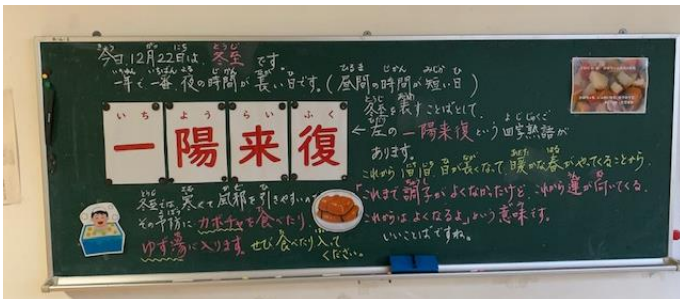 今日、12月22日は、冬至です。
一年で一番、夜の時間が長い日です。(昼間の時間が短い日)
いち よう らい ふく
一陽来復
冬至を表すことばとして、
←左の一陽来復という四字熟語が
あります。
これから日が長くなって暖かな春がやってくることから
「これまで調子がよくなかったけど、これから運が向いてくる。
これからはよくなるよ」という意味です。
いいことばですね。
冬至は、寒くて風邪を引きやすいので
その予防にカボチャを食べたり
ゆず湯に入ります。ぜひ食べたり入って
ください。